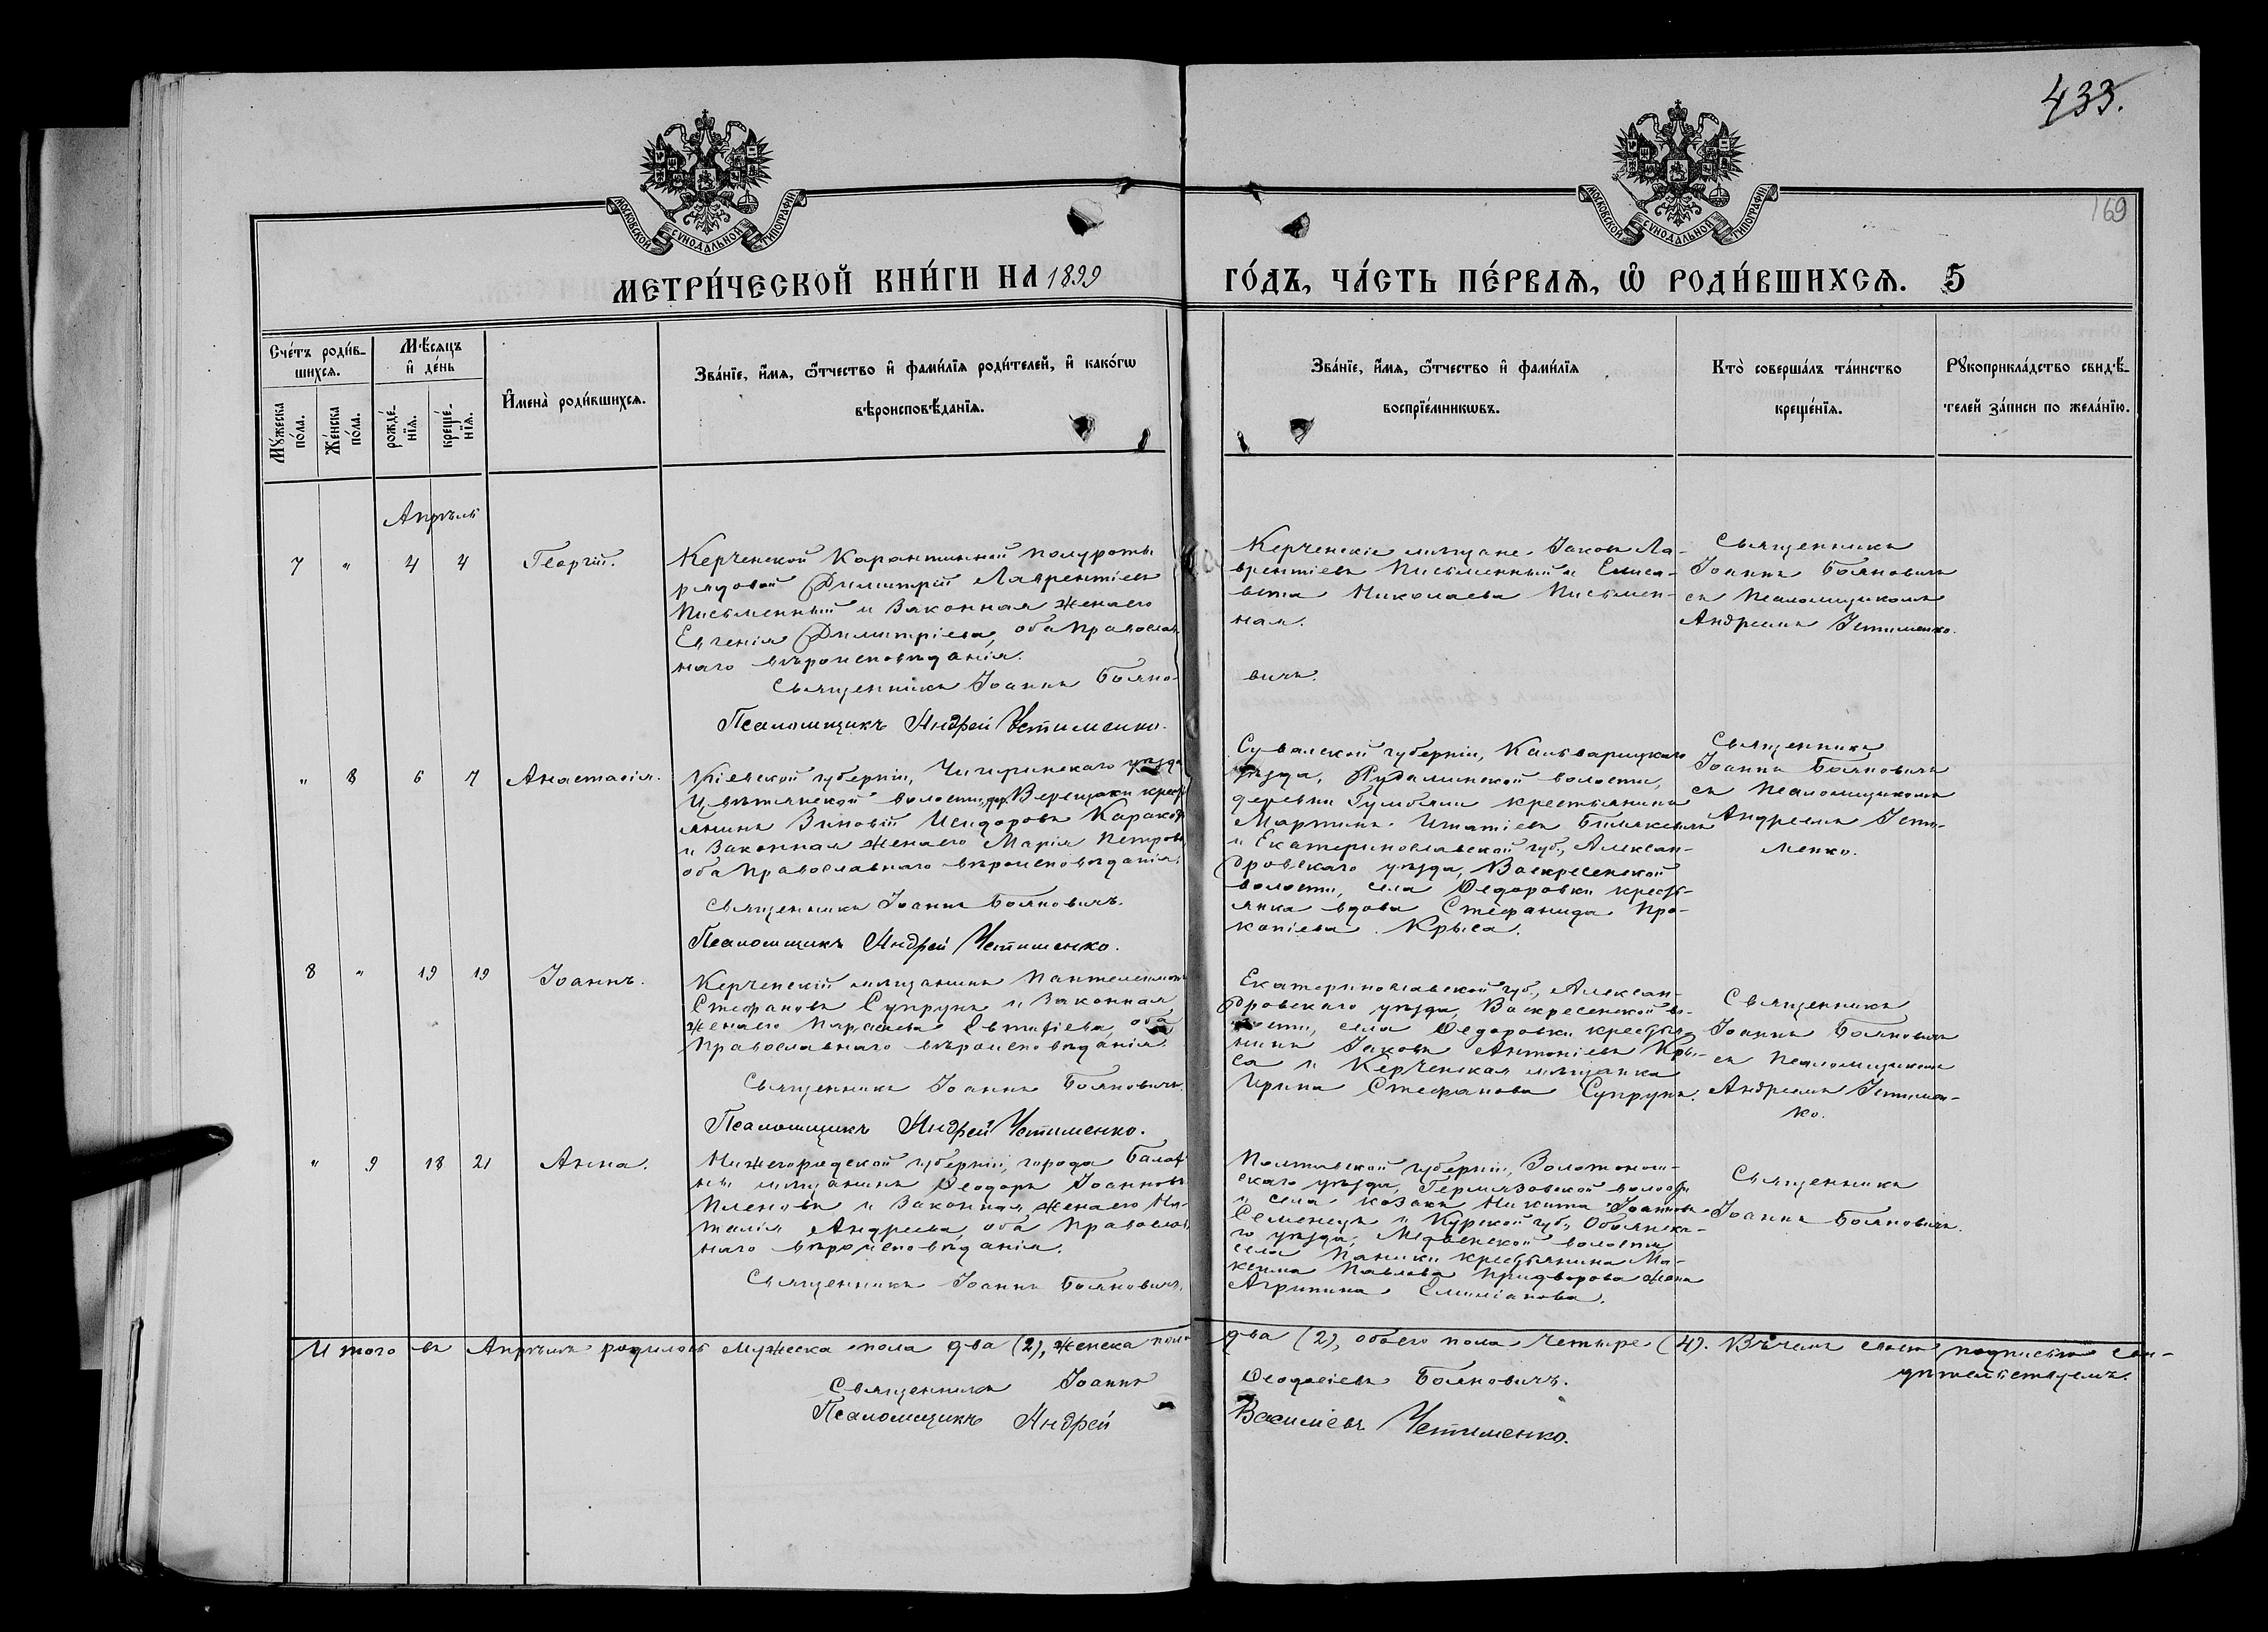 433.
169
МОСКОВСКОЙ СѴНОДАЛЬНОЙ ТИПОГРАФІИ
МОСКОВСКОЙ СѴНОДАЛЬНОЙ ТИПОГРАФІИ
МЕТРИ́ЧЕСКОЙ КНИ́ГИ НА 1899
ГО́ДЪ, ЧА́СТЬ ПЕ́РВАЯ, Ѡ҆ РОДИ́ВШИХСЯ. 5
Сче́тъ роди́в-
шихся.
Мꙋ́жеска по́ла.
Же́нска по́ла.
Мѣ́сяцъ
и҆ де́нь
рожде́-
нїя.
креще́-
нїя.
И҆мена̀ роди́вшихся.
Зва́нїе, и҆́мя, ѻ҆́тчество и҆ фами́лїя роди́телей, и҆ како́гѡ
вѣроисповѣ́данїя.
Зва́нїе, и҆́мя, ѻ҆́тчество и҆ фами́лїя
воспрїе́мникѡвъ.
Кто̀ соверша́лъ та́инство
креще́нїя.
Рꙋкоприкла́дство свидѣ́-
телей за́писи по жела́нїю.
Апрѣль
7 " 4 4 Георгій.
Керченской Карантинной полуроты
рядовой Димитрій Лаврентіевъ
Письменный и законная жена его
Евгенія Димитріева, оба православ
наго вѣроисповѣданія.
Священникъ Іоаннъ Бояно-
вичъ.
Псаломщикъ Андрей Устименко.
Керченскіе мѣщане Іаковъ Ла-
врентіевъ Письменный и Елиса-
вета Николаева Письмен-
ная.
Священникъ
Іоаннъ Бояновичъ
съ псаломщикомъ
Андреемъ Устименко.
" 8 6 7 Анастасія.
Кіевской губерніи, Чигиринскаго уѣзда
Цвѣтянской волости, дер. Верещаки крест
янинъ Зиновій Исидоровъ
и законная жена его Марія Петрова
оба православнаго вѣроисповѣданія.
Священникъ Іоаннъ Бояновичъ.
Псаломщикъ Андрей Устименко.
Сувалской губерніи, Кальварійскаго
уѣзда, Рудаминской волости,
деревни крестьянинъ
Мартинъ Игнатіевъ
и Екатеринославской губ., Алексан-
дровскаго уѣзда, Воскресенской
волости, села Ѳедоровки крестъ-
янка вдова Стефанида Про-
копіева Крыса.
Священникъ
Іоаннъ Бояновичъ
съ псаломщикомъ
Андреемъ Усти-
менко.
8 " 19 19 Іоаннъ.
Керченскій мѣщанинъ Пантелеимонъ
Стефановъ Супрунъ и законная
жена его Параскева Евтихіева, оба
православнаго вѣроисповѣданія.
Священникъ Іоаннъ Бояновичъ.
Псаломщикъ Андрей Устименко.
Екатеринославской губ., Алексан-
дровскаго уѣзда, Воскресенской во-
лости, села Ѳедоровки крестья
нинъ Іаковъ Антоніевъ Кры-
са и Керченская мѣщанка
Ирина Стефанова Супрунъ.
Священникъ
Іоаннъ Бояновичъ
съ псаломщикомъ
Андреемъ Устимен-
ко.
" 9 18 21 Анна.
Нижегородской губерніи, города Балах
ны мѣщанинъ Ѳеодоръ Іоанновъ
Пленовъ и законная жена его На-
талія Андреева, оба православ
наго вѣроисповѣданія.
Священникъ Іоаннъ Бояновичъ.
Полтавской губерніи, Золотонош-
скаго уѣзда, Гермязовской волости
и села козакъ Никита Іоанновъ
Семенецъ и Курской губ., Обоянска-
го уѣзда, Медвенской волости
села Паники крестьянина Ма-
ксима Павлова Придворова жена
Агрипина Емиліанова.
Священникъ
Іоаннъ Бояновичъ.
Итого въ Апрѣлѣ родилось мужеска пола два (2), женска пола два (2), обоего пола четыре (4). Въ чемъ своею подписью сви-
дѣтельствуемъ.
Священникъ Іоаннъ Ѳеодосіевъ Бояновичъ.
Псаломщикъ Андрей Васильевъ Устименко.